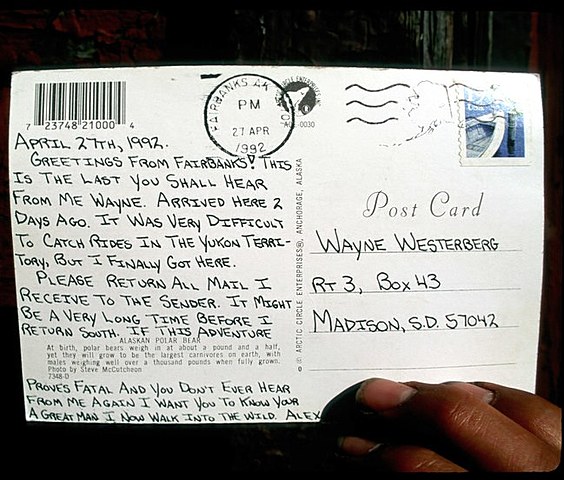 7 23748 21000 4
FAIRBANKS AK
PM
27 APR
1992
APRIL 27TH, 1992.
GREETINGS FROM FAIRBANKS! THIS
IS THE LAST YOU SHALL HEAR
FROM ME WAYNE. ARRIVED HERE 2
DAYS AGO. IT WAS VERY DIFFICULT
TO CATCH RIDES IN THE YUKON TERRI-
TORY. BUT I FINALLY GOT HERE.
PLEASE RETURN ALL MAIL I
RECEIVE TO THE SENDER. IT MIGHT
BE A VERY LONG TIME BEFORE I
RETURN SOUTH. IF THIS ADVENTURE
ALASKAN POLAR BEAR
At birth, polar bears weigh in at about a pound and a half,
yet they will grow to be the largest carnivores on earth, with
males weighing well over a thousand pounds when fully grown.
Photo by Steve McCutcheon
7348-D
PROVES FATAL AND YOU DON'T EVER HEAR
FROM ME AGAIN I WANT YOU TO KNOW YOUR
A GREAT MAN I NOW WALK INTO THE WILD. ALEX
© ARCTIC CIRCLE ENTERPRISES®, ANCHORAGE, ALASKA
Post Card
WAYNE WESTERBERG
RT 3, BOX 43
MADISON, S.D. 57042